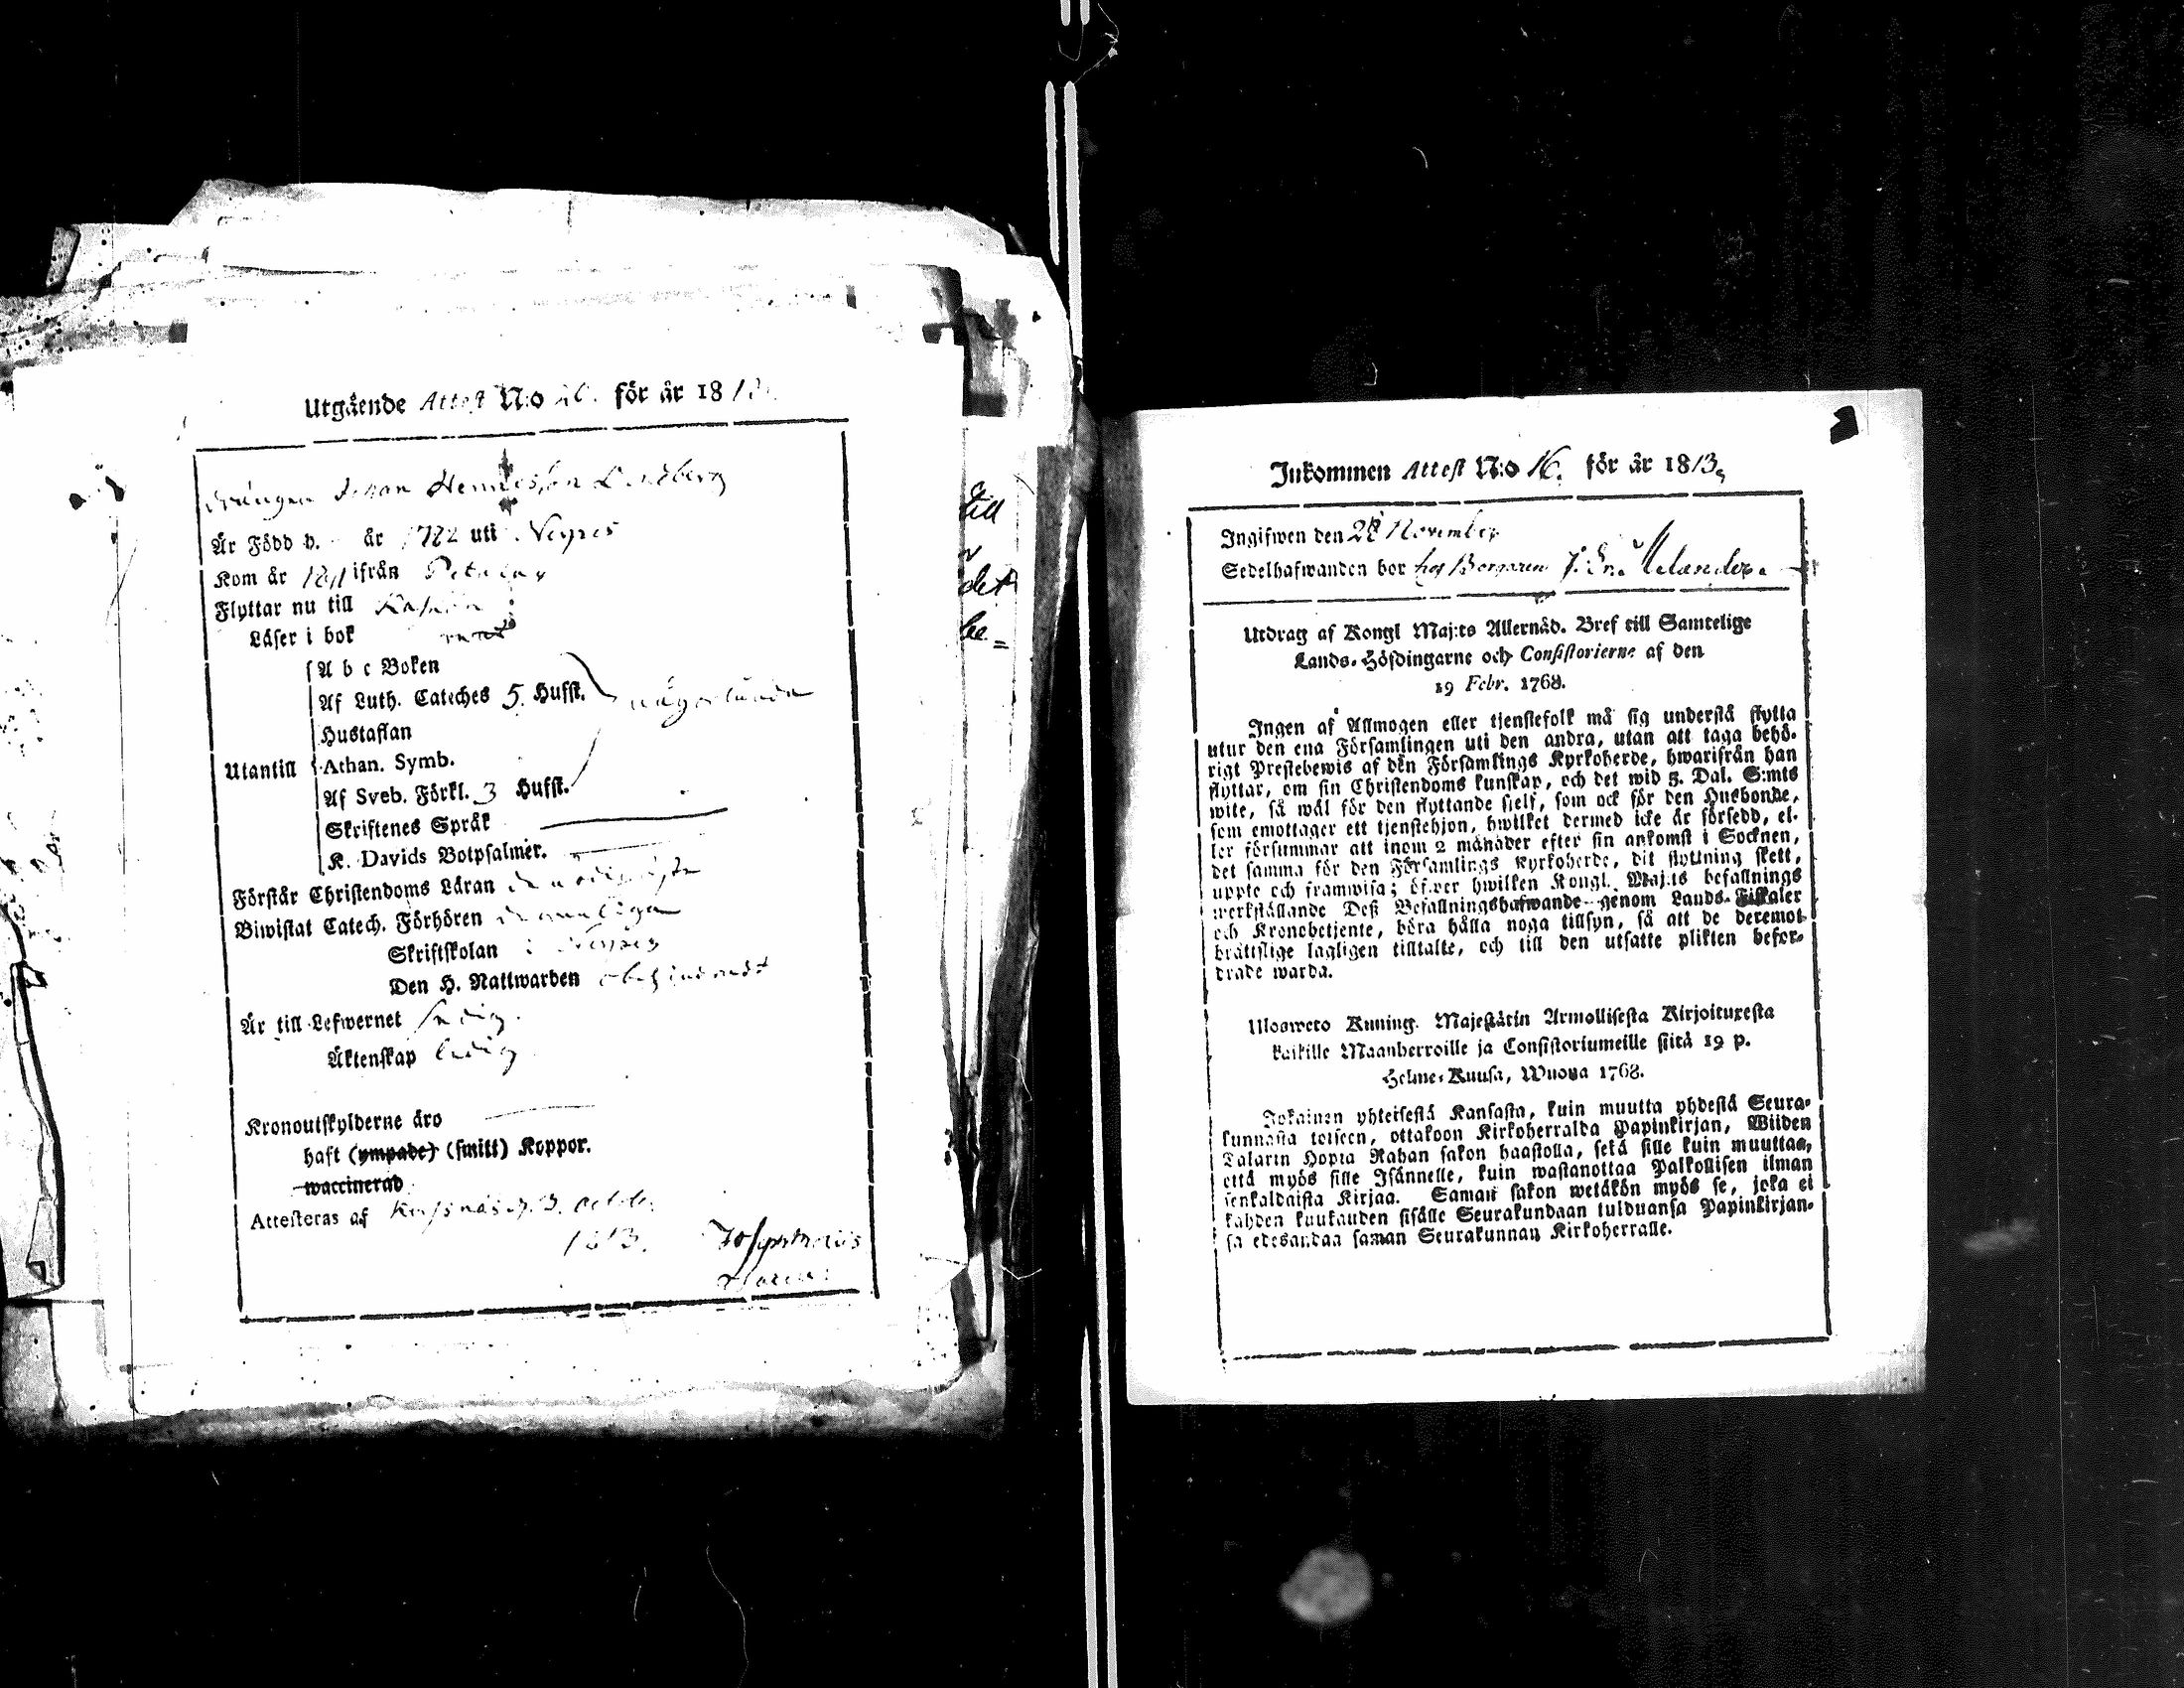 Utgående Attest N:o 26. för år 1813.
Drängen Johan Hendersson Lindberg
År Född d. år 1782 uti Nerpes
Kom år 1811 ifrån Petalax
Flyttar nu till Kaskö
Läser i bok
A b c Boken
Af Luth. Cateches 5. Hufst. någorlunda
Hustaflan
Utantill Athan. Symb.
Af Sveb. Förkl. 3 Hufst.
Skriftenes Språk
K. Davids Botpsalmer.
Förstår Christendoms Läran
Biwistat Catech. Förhören
Skriftskolan i Nerpes
Den H. Nattwarden obehindradt
Är till Lefwernet
Äktenskap ledig
Kronoutskylderne äro
haft (ympade) (smitt) Koppor.
waccinerad
Attesteras af Korsnäs d. 3. octob.
1813.
till
det
be=
Inkommen Attest N:o 16. för år 1813,
Ingifwen den 28 November
Sedelhafwanden bor hos Borgaren Melander.
Utdrag af Kongl Maj:ts Allernåd. Bref till Samtelige
Lands-Höfdingarne och Consistorierne af den
19 Febr. 1768.
Ingen af Allmogen eller tjenstefolk må sig understå flytta
utur den ena Församlingen uti den andra, utan att taga behö-
rigt Prestebewis af den Församlings Kyrkoherde, hwarifrån han
flyttar, om sin Christendoms kunskap, och det wid 5. Dal. S:mts
wite, så wäl för den flyttande sielf, som ock för den Husbonde,
som emottager ett tjenstehjon, hwilket dermed icke är försedd, el-
ler försummar att inom 2 månader efter sin ankomst i Socknen,
det samma för den Församlings Kyrkoherde, dit flyttning skett,
uppte och framwisa; öfwer hwilken Kongl. Maj:ts befallnings
werkställande Deß Befallningshafwande genom Lands-Fiskaler
och Kronobetjente, böra hålla noga tillsyn, så att de deremot
bråttslige lagligen tilltalte, och till den utsatte plikten befor-
drade warda.
Ulosweto Kuning. Majestätin Armollisesta Kirjoituxesta
kaikille Maanherroille ja Consistoriumeille siitä 19 p.
Helme-Kuusa, Wuona 1768.
Jokainen yhteisestä Kansasta, kuin muutta yhdestä Seura-
kunnasta toiseen, ottakoon Kirkoherralda Papinkirjan, Wiiden
Talarin Hopia Rahan sakon haastolla, sekä sille kuin muuttaa,
että myös sille Isännelle, kuin wastanottaa Palkollisen ilman
senkaldaista Kirjaa. Saman sakon wetäkön myös se, joka ei
kahden kuukauden sisälle Seurakundaan tulduansa Papinkirjan-
sa edesandaa saman Seurakunnan Kirkoherralle.